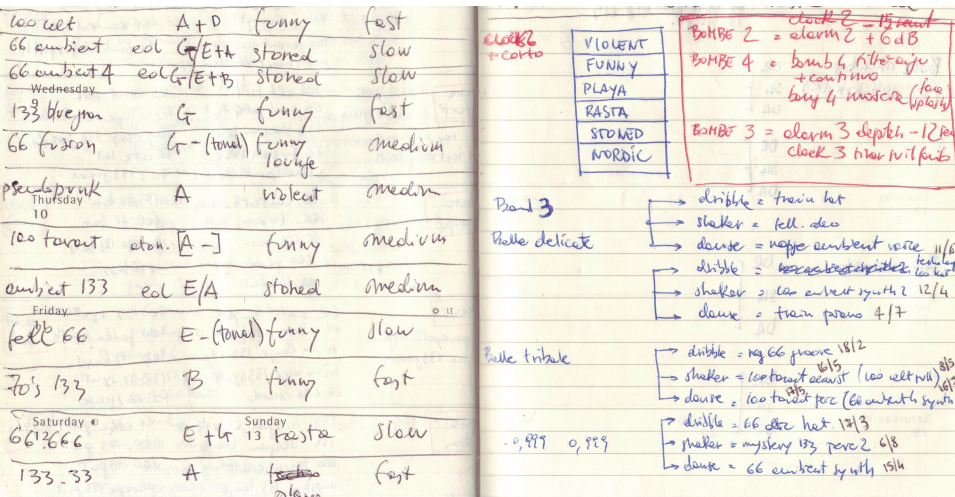 100 celt A + D funny fast
66 ambient eol G/E+A stoned slow
66 ambient 4 eol G/E+B stoned slow
Wednesday
9
133 bluegran G funny fast
66 fusion G - (tonal) funny medium
lounge
pseudopunk A violent medium
Thursday
10
100 tarant. aton. [A -] funny medium
ambient 133 eol E/A stoned medium
Friday
fell 66 E - (tonal) funny slow
70's 133 B funny fast
Saturday
12
Sunday
13
66.666 E + G rasta slow
133.33 A fast
clock 2
+ corto
VIOLENT
FUNNY
PLAYA
RASTA
STONED
NORDIC
clock 2 =
BOMBE 2 = alarm 2 + 6 dB
BOMBE 4 = bomb 4
+ continuo
BOMBE 3 = alarm 3 depth - 12
clock 3
Band 3
Balle delicate
dribble = train hat
shaker = fell.
danse = ambient voice 11/6
dribble =
shaker = 100 ambient synth 2 12/4
danse = train piano 4/7
Balle tribale
dribble = reg 66 groove 18/2
16/5
shaker = 100 tarant (100 celt) 8/5
17/5
danse = 100 tarant perc (66 ambient synth
dribble = 66 hat. 17/3
-0,999 0,999
shaker = mystery 133 perc 2 6/8
danse = 66 ambient synth 15/4